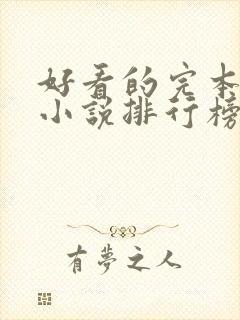 好看的完本
小说排行榜
有夢之人